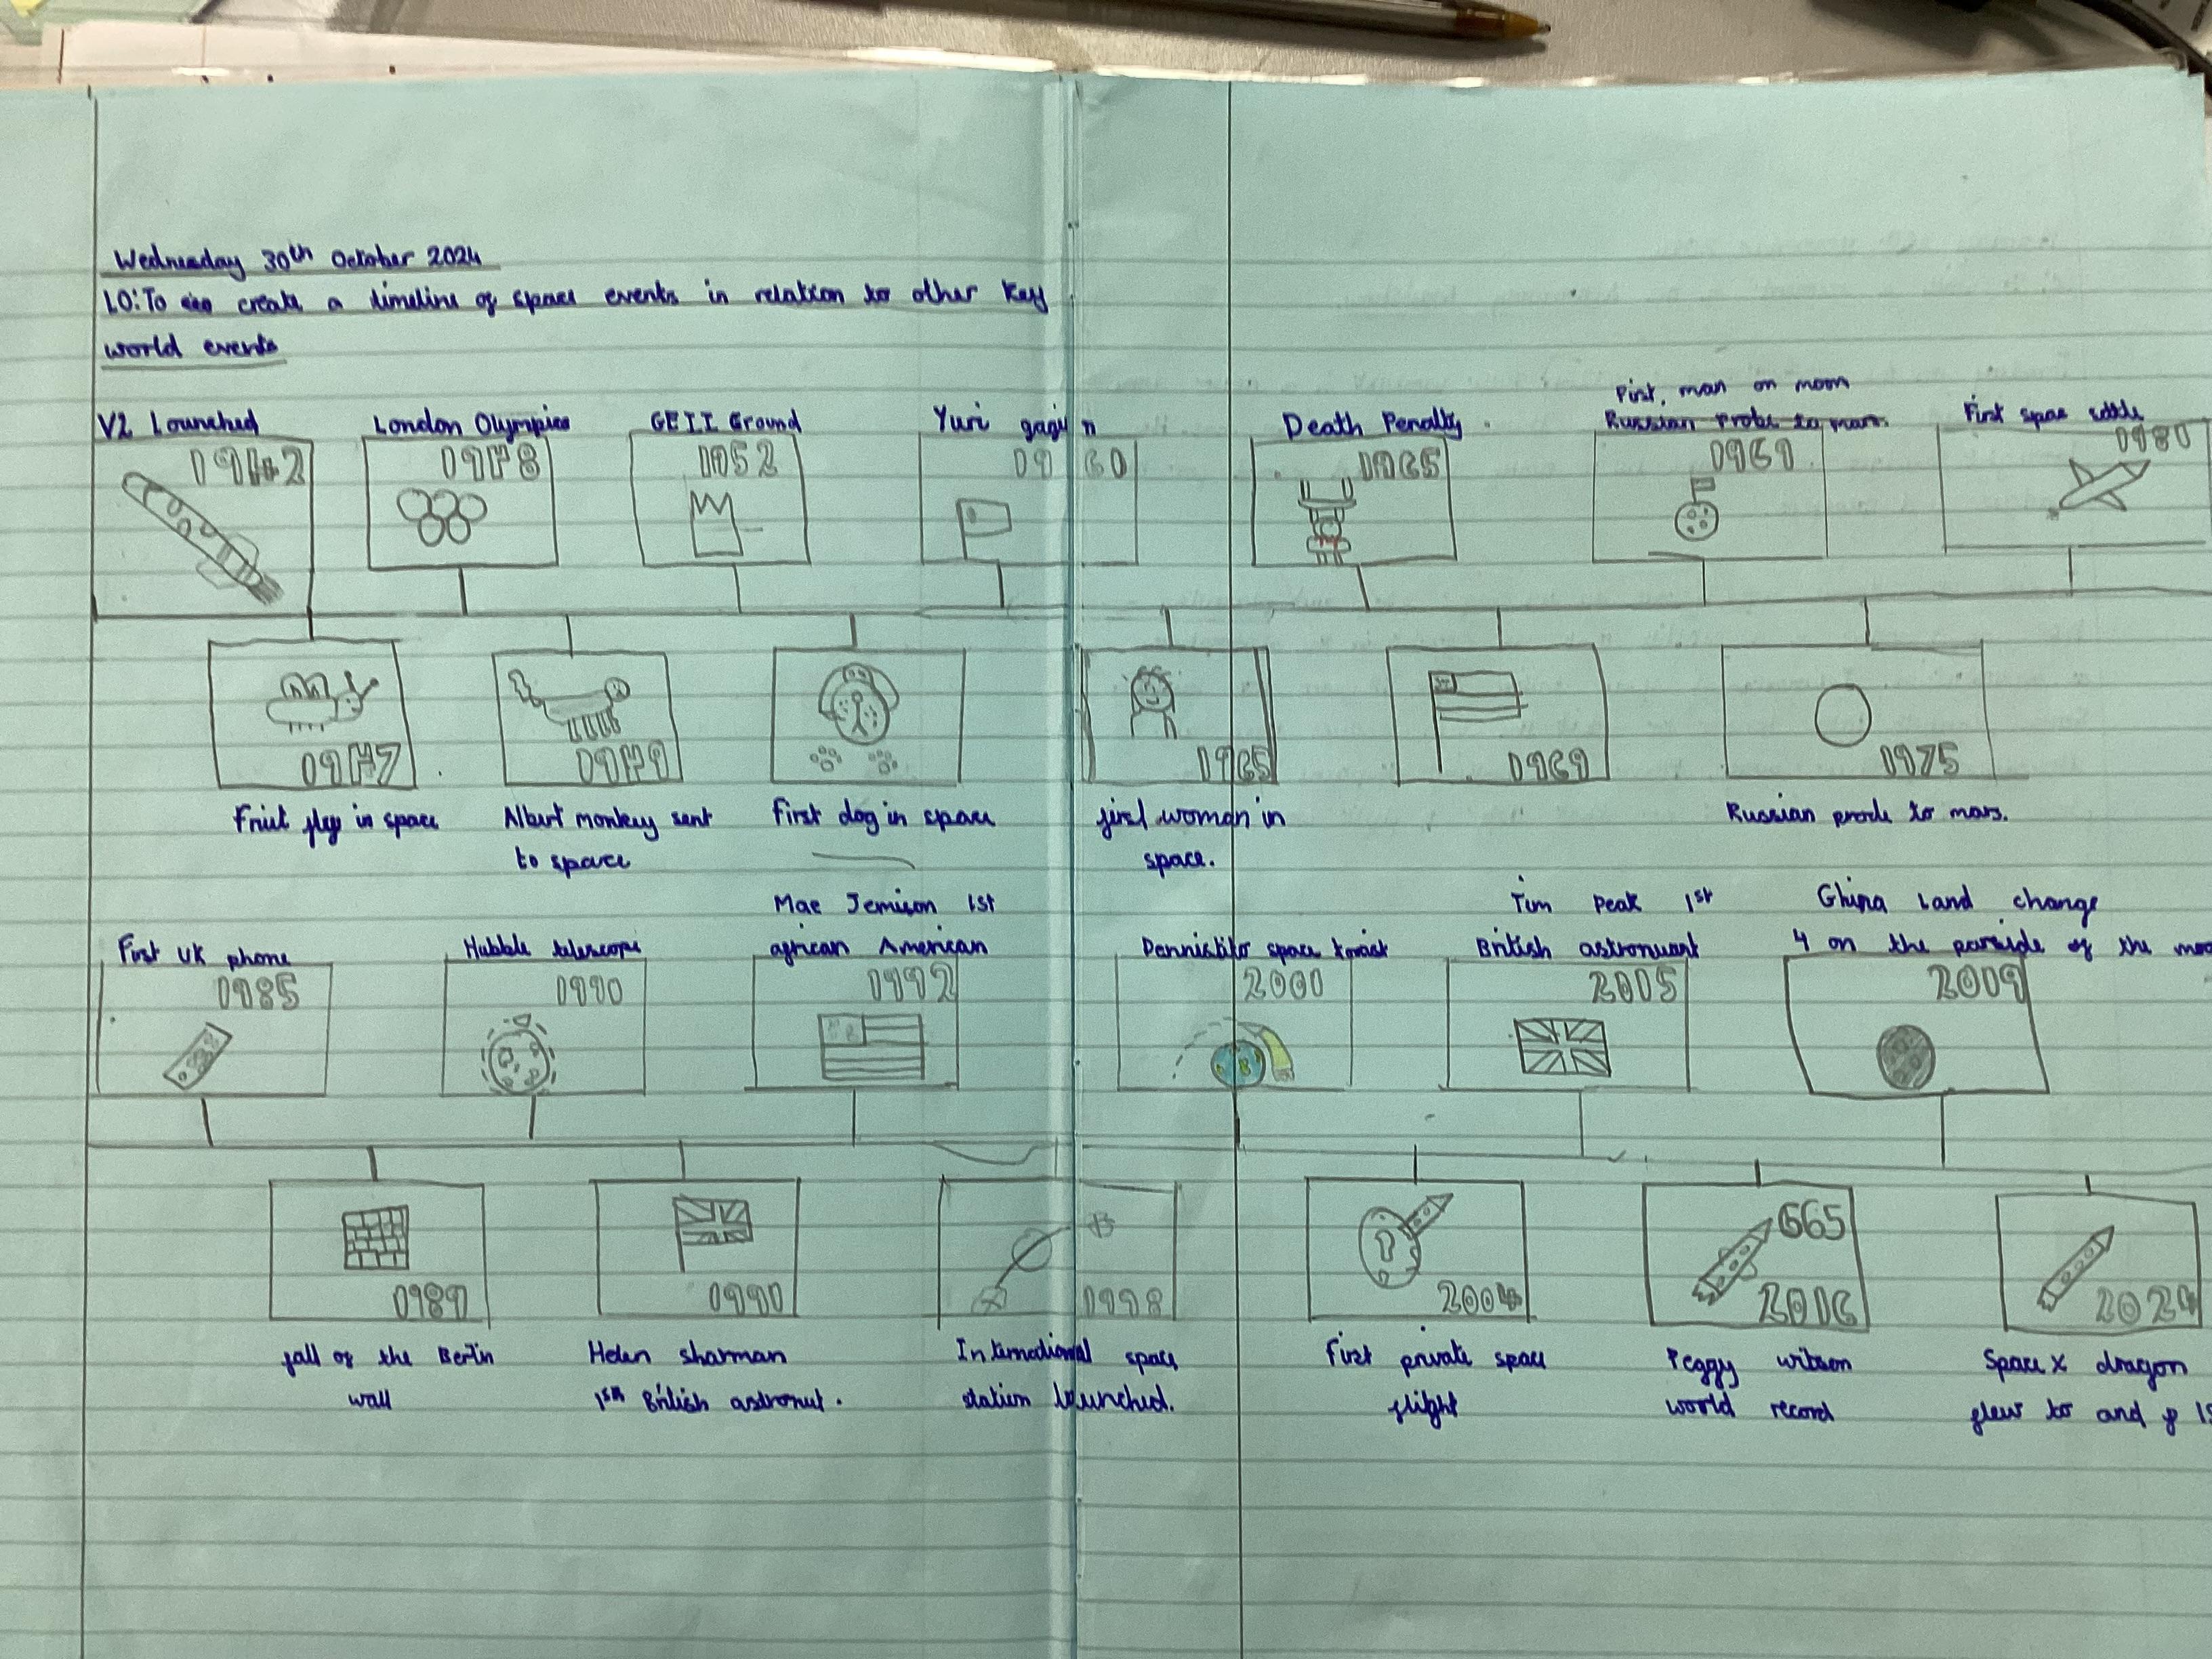 Wednesday 30th October 2024
LO: To create a timeline of space events in relation to other key
world events
V2 Lounched
1942
London Olympics
1948
GEII Ground
1952
Yuri gagin
1960
Death Penalty.
1965
First, man on moon
Russian probe to mars.
1969
First spae
1980
1947
Friut flys in space
1949
Albert monkey sent
to space
First dog in space
1965
first woman in
space.
1969
1975
Russian prode to mars.
First UK phone
1985
Hubble telescope
1990
Mae Jemison 1st
african American
1992
Dennistito space
2001
Tim Peak 1st
British astronuant
2015
China Land change
4 on the parside of the moo
2019
1989
fall of the Berlin
wall
1990
Helen sharman
1st British astronut.
1998
International space
station launched.
2004
First private space
flight
665
2016
Peggy witson
world record
2024
Space X dragon
flew to and